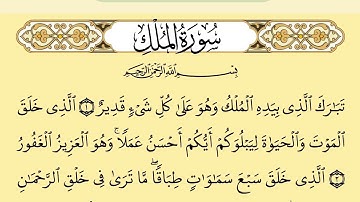 سُورَةُ المُلْكِ
بِسْمِ اللَّهِ الرَّحْمَٰنِ الرَّحِيمِ
تَبَارَكَ الَّذِي بِيَدِهِ الْمُلْكُ وَهُوَ عَلَىٰ كُلِّ شَيْءٍ قَدِيرٌ ١ الَّذِي خَلَقَ
الْمَوْتَ وَالْحَيَوٰةَ لِيَبْلُوَكُمْ أَيُّكُمْ أَحْسَنُ عَمَلًا ۚ وَهُوَ الْعَزِيزُ الْغَفُورُ
٢ الَّذِي خَلَقَ سَبْعَ سَمَاوَاتٍ طِبَاقًا ۖ مَّا تَرَىٰ فِي خَلْقِ الرَّحْمَانِ